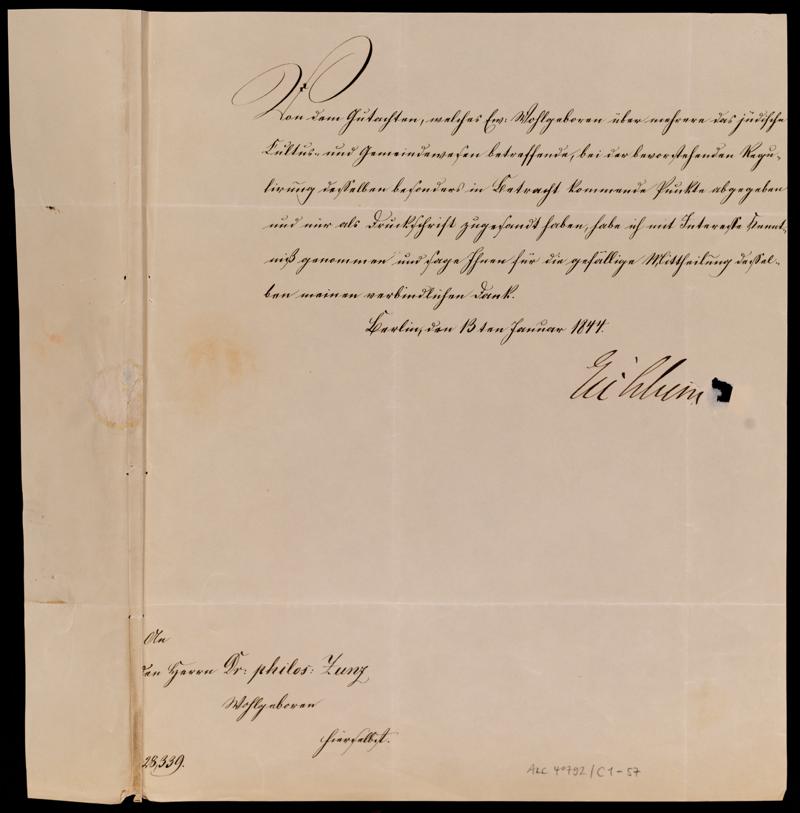 Von dem Gutachten, welches Ew: Wohlgeboren über mehrere das jüdische
Cultus- und Gemeindewesen betreffende, bei der bevorstehenden Regu-
lirung desselben besonders in Betracht kommende Punkte abgegeben
und mir als Druckschrift zugesandt haben, habe ich mit Interesse Kennt-
niß genommen und sage Ihnen für die gefällige Mittheilung dessel-
ben meinen verbindlichen Dank.
Berlin, den 13ten Januar 1844.
Eichhorn
An
den Herrn Dr: philos: Zunz
Wohlgeboren
hierselbst.
28,339.
ARC 4°792/C1-57